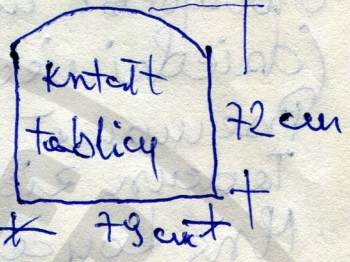 kształt
tablicy
72 cm
79 cm